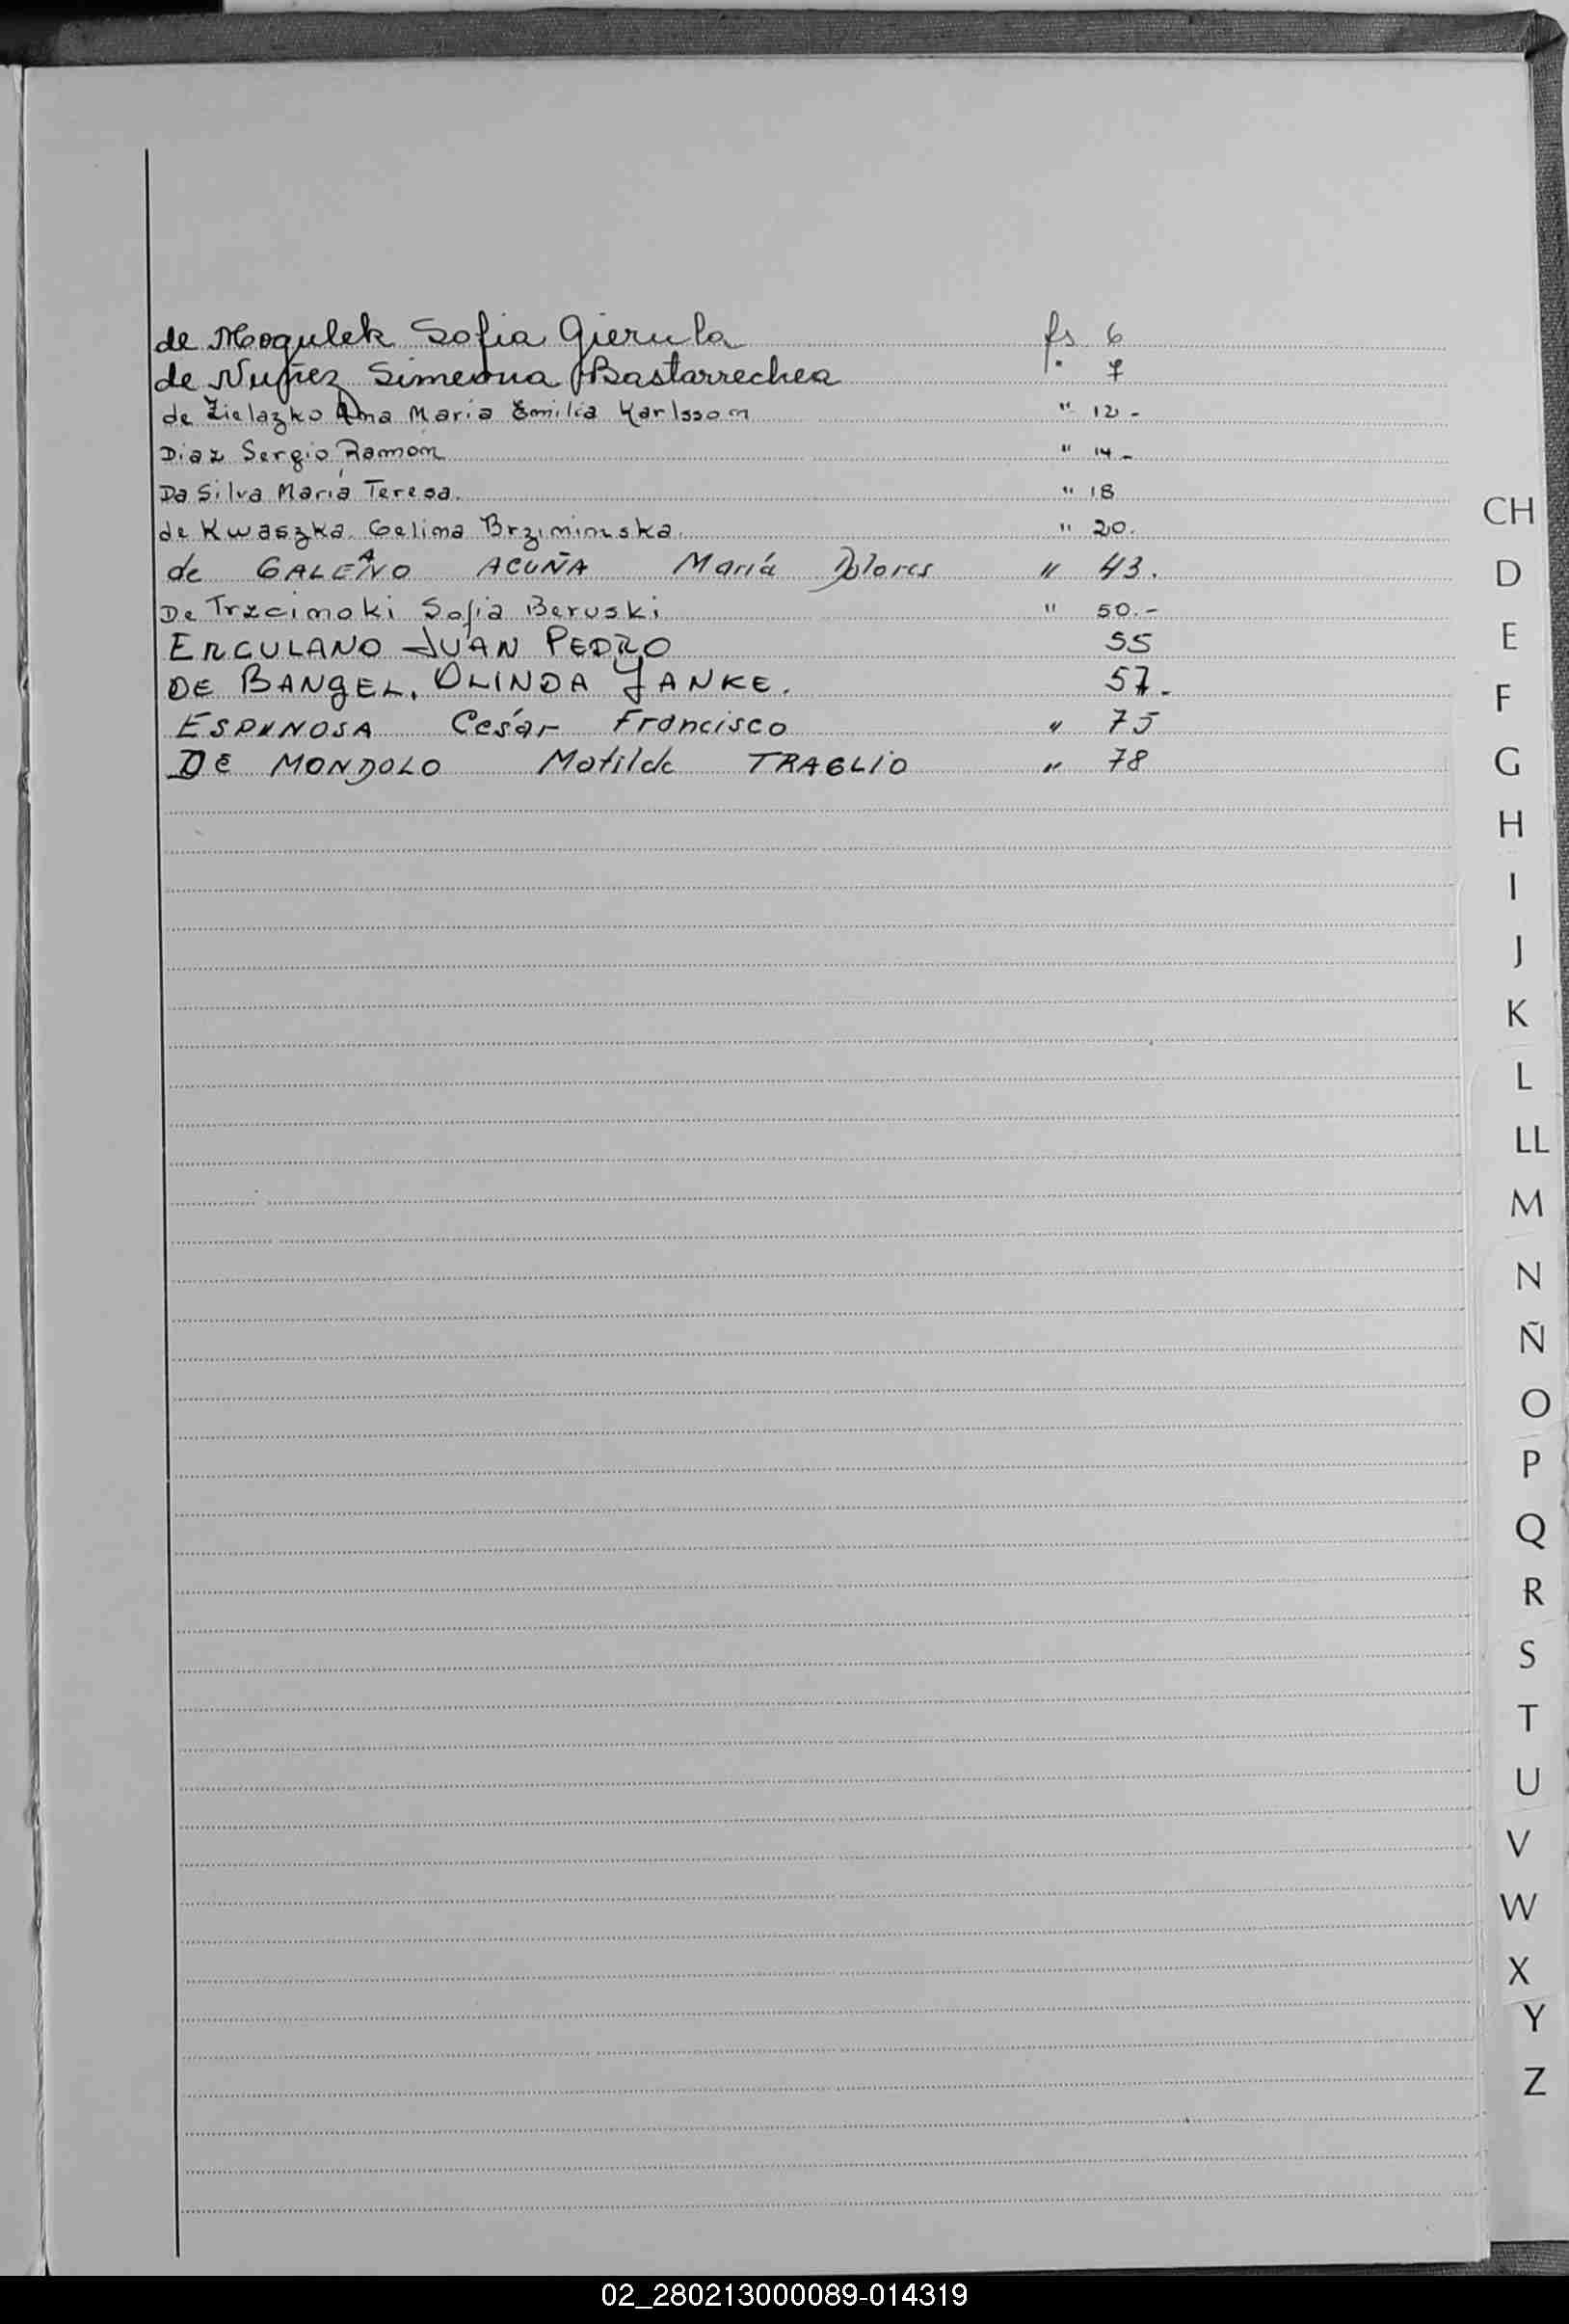 de Mogulek Sofia Gierula fs 6
de Nuñez Simeona Bastarrechea " 7
de Zielazko Ana Maria Emilia Karlssom " 12-
Diaz Sergio Ramón " 14-
Da Silva María Teresa. " 18
de Kwaszka Celima Brziminska. " 20.
de GALEANO ACUÑA María Dolores " 43.
De Trzcimoki Sofia Beruski " 50.-
ERCULANO JUAN PEDRO 55
DE BANGEL. OLINDA YANKE. 57.
ESPINOSA César Francisco " 75
DE MONDOLO Matilde TRAGLIO " 78
CH
D
E
F
G
H
I
J
K
L
LL
M
N
Ñ
O
P
Q
R
S
T
U
V
W
X
Y
Z
02_280213000089-014319